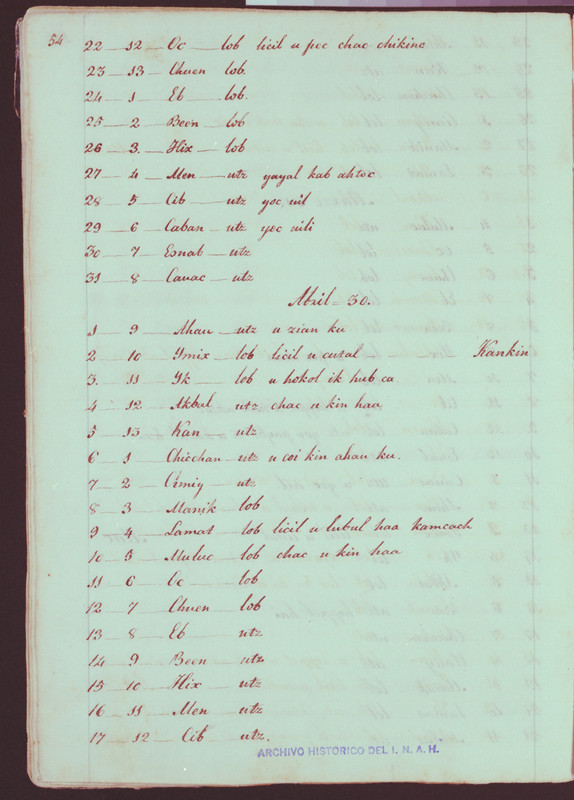 54
22 — 12 — Oc — lob licil u pec chac chikine
23 — 13 — Chuen lob.
24 — 1 — Eb — lob.
25 — 2 — Been — lob
26 — 3. — Hix — lob
27 — 4 — Men — utz yayal kab ahtoc
28 — 5 — Cib — utz yoc uil
29 — 6 — Caban — utz yoc uili
30 — 7 — Esnab — utz
31 — 8 — Cauac — utz
Abril = 30.
1 — 9 — Ahau — utz u zian ku
2 — 10 — Ymix — lob licil u cutal — Kankin
3. — 11 — Yk — lob u hokol ik hub ca
4 — 12 — Akbal — utz chac u kin haa
5 — 13 — Kan — utz
6 — 1 — Chicchan — utz u coi kin ahau ku.
7 — 2 — Cimiy — utz
8 — 3 — Manik — lob
9 — 4 — Lamat — lob licil u lubul haa kamcach
10 — 5 — Muluc — lob chac u kin haa
11 — 6 — Oc — lob
12 — 7 — Chuen — lob
13 — 8 — Eb — utz
14 — 9 — Been — utz
15 — 10 — Hix — utz
16 — 11 — Men — utz
17 — 12 — Cib utz.
ARCHIVO HISTORICO DEL I. N. A. H.